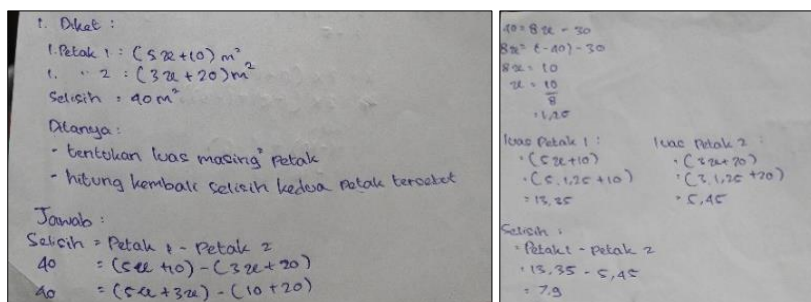 1. Diket :
1. Petak 1 : (5x+10) m²
1. " 2 : (3x+20) m²
Selisih = 40 m²
Ditanya :
- tentukan luas masing² petak
- hitung kembali selisih kedua petak tersebut
Jawab :
Selisih = Petak 1 - Petak 2
40 = (5x+10) - (3x+20)
40 = (5x+3x) - (10+20)
40 = 8x - 30
8x = (-40) - 30
8x = 10
x = 10
8
= 1,25
luas Petak 1 :
= (5x+10)
= (5.1,25+10)
= 13,35
luas Petak 2 :
= (3x+20)
= (3.1,25+20)
= 5,45
Selisih :
= Petak 1 - Petak 2
= 13,35 - 5,45
= 7,9